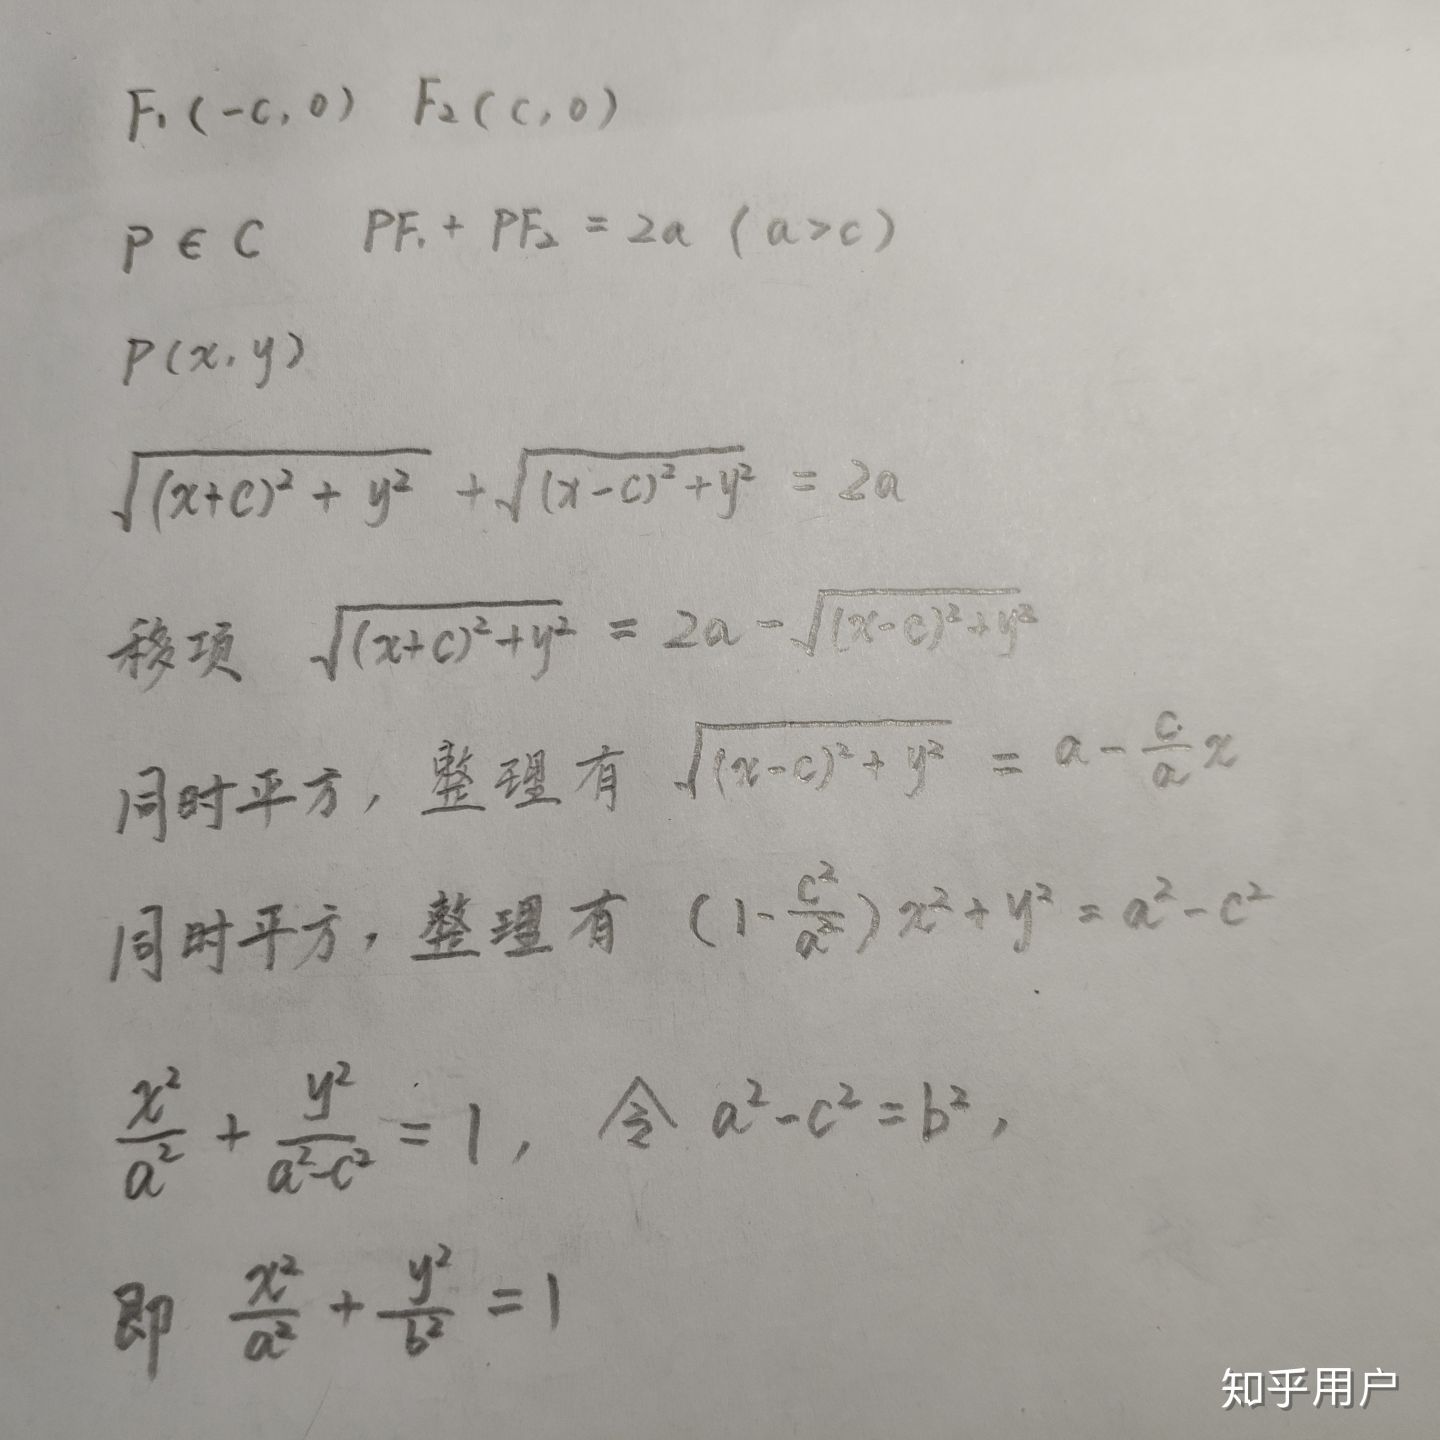 F₁(-c,0) F₂(c,0)
P∈C PF₁+PF₂=2a (a>c)
P(x,y)
√((x+c)²+y²)+√((x-c)²+y²)=2a
移项 √((x+c)²+y²)=2a-√((x-c)²+y²)
同时平方，整理有 √((x-c)²+y²)=a-c/a x
同时平方，整理有 (1-c²/a²)x²+y²=a²-c²
x²/a²+y²/(a²-c²)=1，令 a²-c²=b²，
即 x²/a²+y²/b²=1
知乎用户